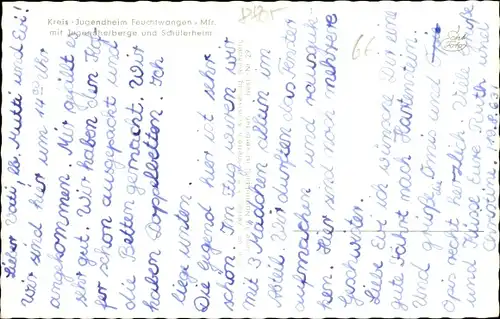 Kreis-Jugendheim Feuchtwangen - Mfr.
mit Jugendherberge und Schülerheim
Lieber Vati, lb. Mutti und Evi!
Wir sind hier um 14 Uhr
angekommen. Mir gefällt es
sehr gut. Wir haben den Kof
fer schon ausgepackt und
die Betten gemacht. Wir
haben Doppelbetten. Ich
liege unten.
Die Gegend hier ist sehr
schön. Im Zug waren wir
mit 3 Mädchen allein im
Abteil. Wir durften das Fenster
aufmachen und rausguk-
ken. Hier sind von mehrere
Geschwister.
Liebe Evi ich wünsche Dir eine
gute Fahrt nach
Und grüße die Omis und
Opis recht herzlich. Viele Grüße
und Küsse Eure Ruth und